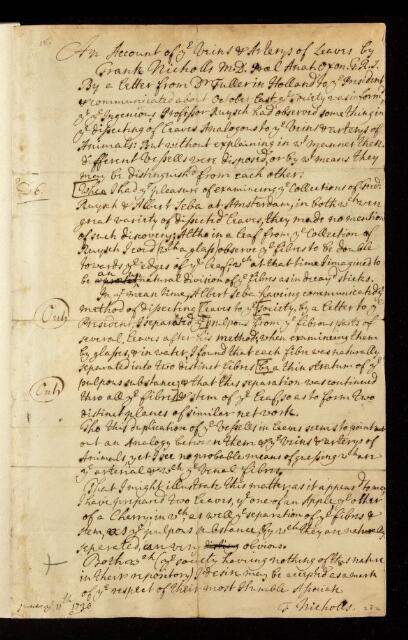 An Account of yᵉ Veins & Arterys of Leaves by
Frank Nicholls M.D. Præl. Anat. Oxon. F.R.S.
By a Letter from Dʳ Fuller in Holland to yᵉ President
& communicated about October last yᵉ Society was inform'd
yᵗ yᵉ Ingenious Professor Ruysch had observed something in
yᵉ dissecting of Leaves Analogous to yᵉ Veins & arterys of
Animals: But without explaining in wᵗ manner these
different Vessells were disposed or by wᵗ means they
may be distinguish'd from each other.
When I had yᵉ pleasure of examineing yᵉ Collections of
Ruysch & Albert Seba at Amsterdam, in both wᶜʰ were
great variety of dissected Leaves, they made no mention
of such discovery; Altho in a Leaf from yᵉ Collection of
Ruysch I could wᵗʰ a glass observe yᵉ fibres to be double
towards yᵉ edges of yᵉ Leaf wᶜʰ at that time I imagined to
be an natural division of yᵉ fibres as in decay'd sticks.
In yᵉ mean time, Albert Seba having communicated yᵉ
method of dissecting Leaves to yᵉ Society, by a Letter to yᵉ
President, I separated yᵉ pulpous from yᵉ fibrous parts of
several Leaves after his method, when examineing them
by glasses & in water I found that each fibre was naturally
separated into two distinct fibres by a thin stratum of yᵉ
pulpous substance, & that this separation was continued
thro all yᵉ fibres & stem of yᵉ Leaf so as to form two
distinct planes of similar net work.
Tho this duplication of yᵉ Vessells in Leaves seems to point
out an Analogy between them & yᵉ Veins & arterys of
Animals, yet I see no probable means of guessing wᶜʰ are
yᵉ arterial & wᶜʰ yᵉ Venal fibres.
That I might illustrate this matter as it appears to me
I have prepared two Leaves, yᵉ one of an Apple yᵉ other
of a Cherry, in wᶜʰ as well yᵉ separation of yᵉ fibres &
stem, as yᵉ pulpous substance by wᶜʰ they are naturally
seperated, are very obvious.
Both wᶜʰ (yᵉ society having nothing of this nature
in their repository) I desire may be accepted as a mark
of yᵉ respect of their most humble servant
F. Nicholls.
11ᵗʰ 1730
Only
Only